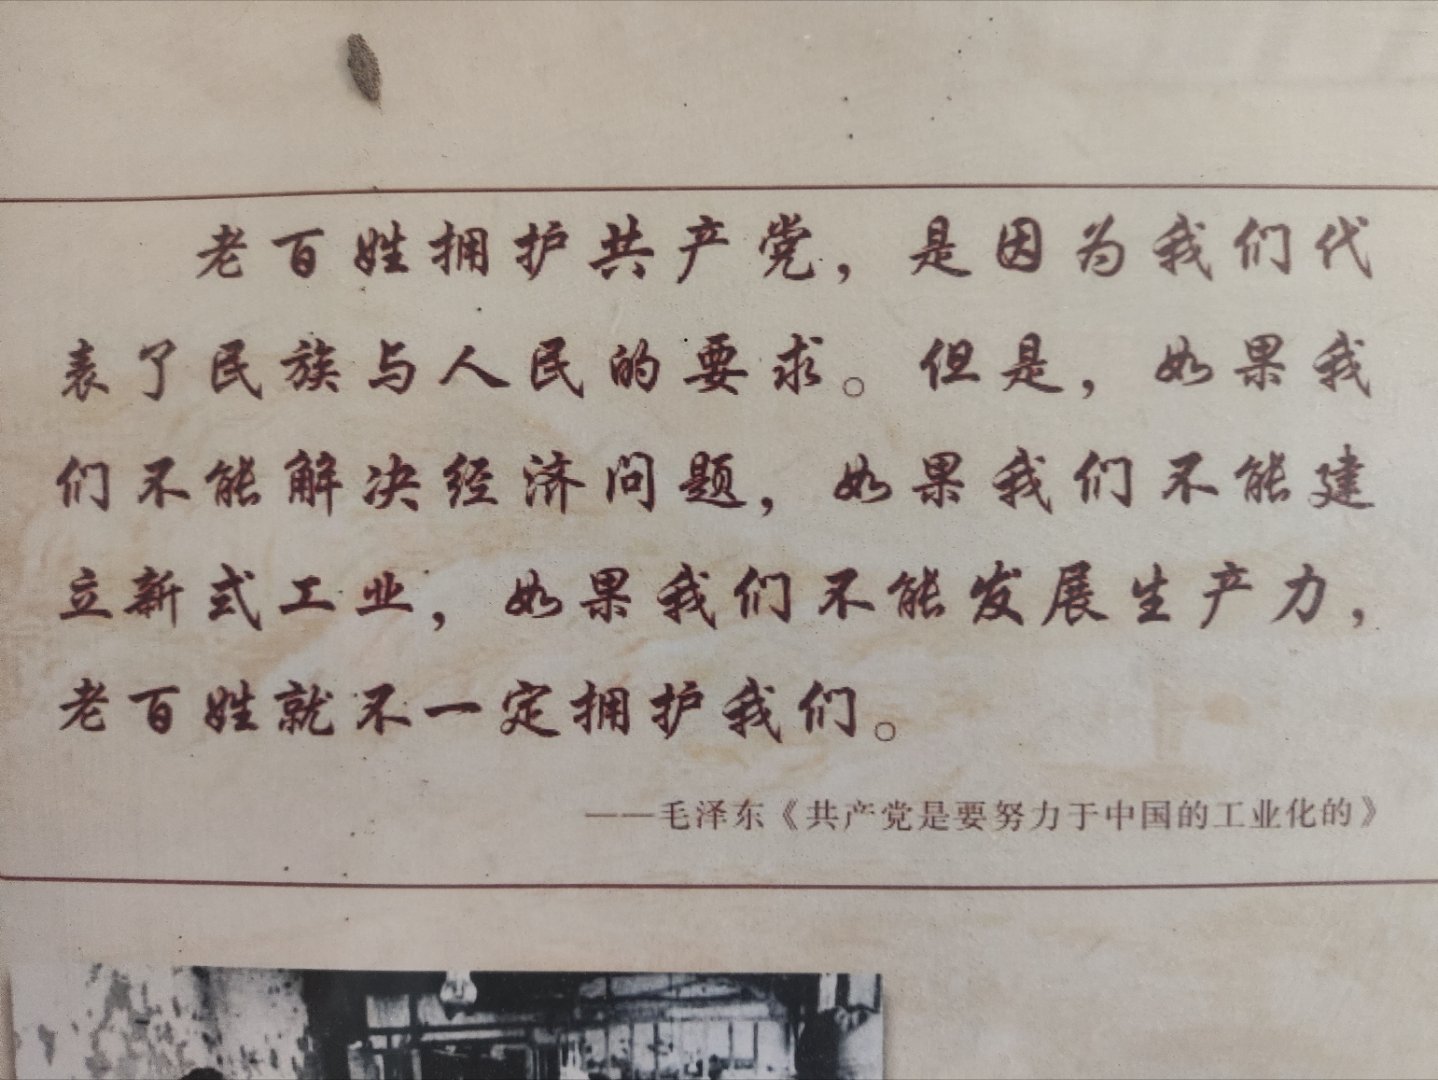 老百姓拥护共产党，是因为我们代
表了民族与人民的要求。但是，如果我
们不能解决经济问题，如果我们不能建
立新式工业，如果我们不能发展生产力，
老百姓就不一定拥护我们。
——毛泽东《共产党是要努力于中国的工业化的》